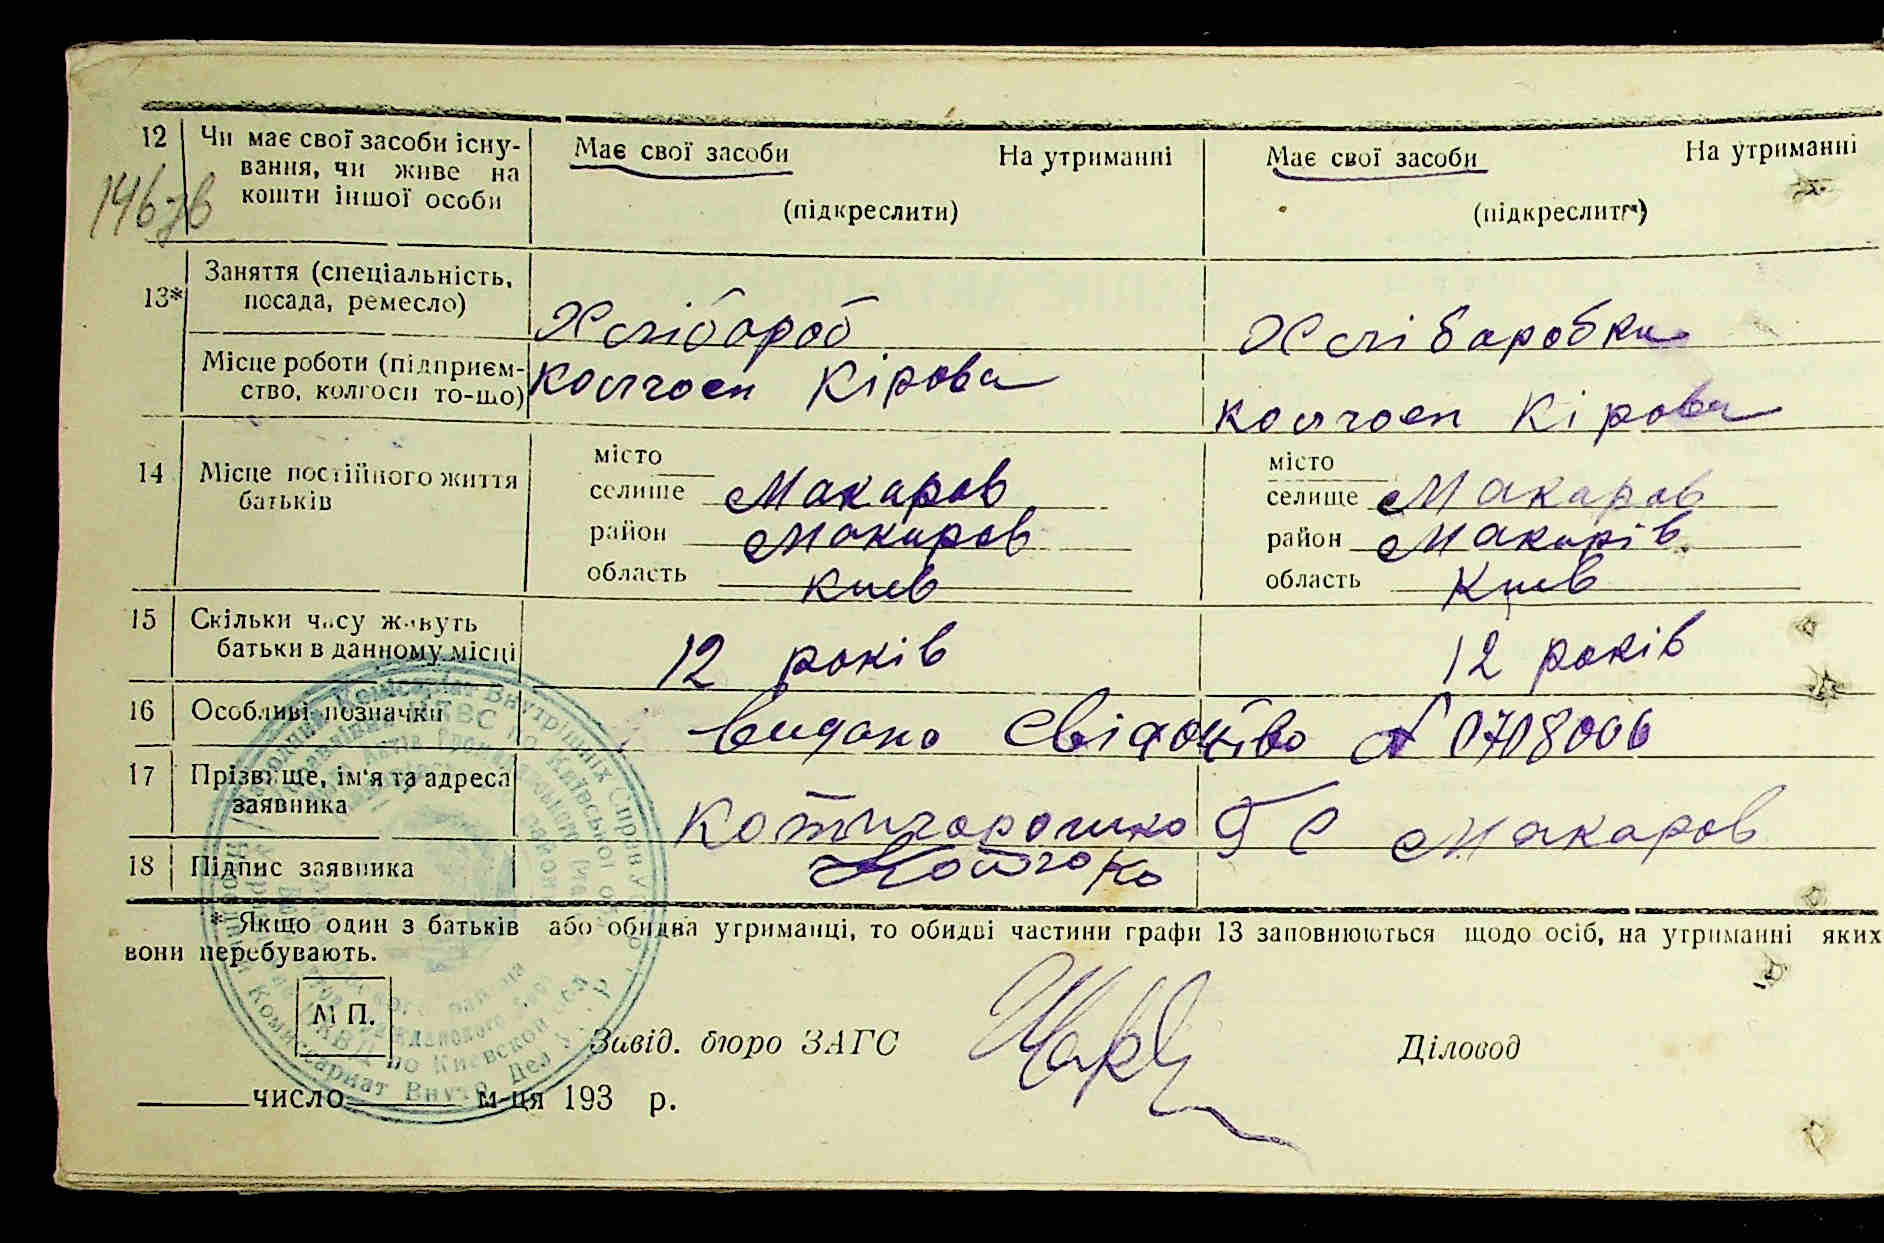 12 Чи має свої засоби існу- Має свої засоби На утриманні Має свої засоби На утриманні
вання, чи живе на
146зв кошти іншої особи (підкреслити) (підкреслити)
13* Заняття (спеціальність,
посада, ремесло) Хлібороб Хлібаробка
Місце роботи (підприєм-
ство, колгосп то-що) колгосп Кірова колгосп Кірова
14 Місце постійного життя
батьків
місто місто
селище Макаров селище Макаров
район Макаров район Макарів
область Киев область Киев
15 Скільки часу живуть
батьки в данному місці 12 років 12 років
16 Особливі позначки видано свідотство № 0708006
17 Прізвище, ім'я та адреса
заявника Котигорошко Г С Макаров
18 Підпис заявника
* Якщо один з батьків або обидва утриманці, то обидві частини графи 13 заповнюються щодо осіб, на утриманні яких
вони перебувають.
М П.
Завід. бюро ЗАГС Діловод
число м-ця 193 р.